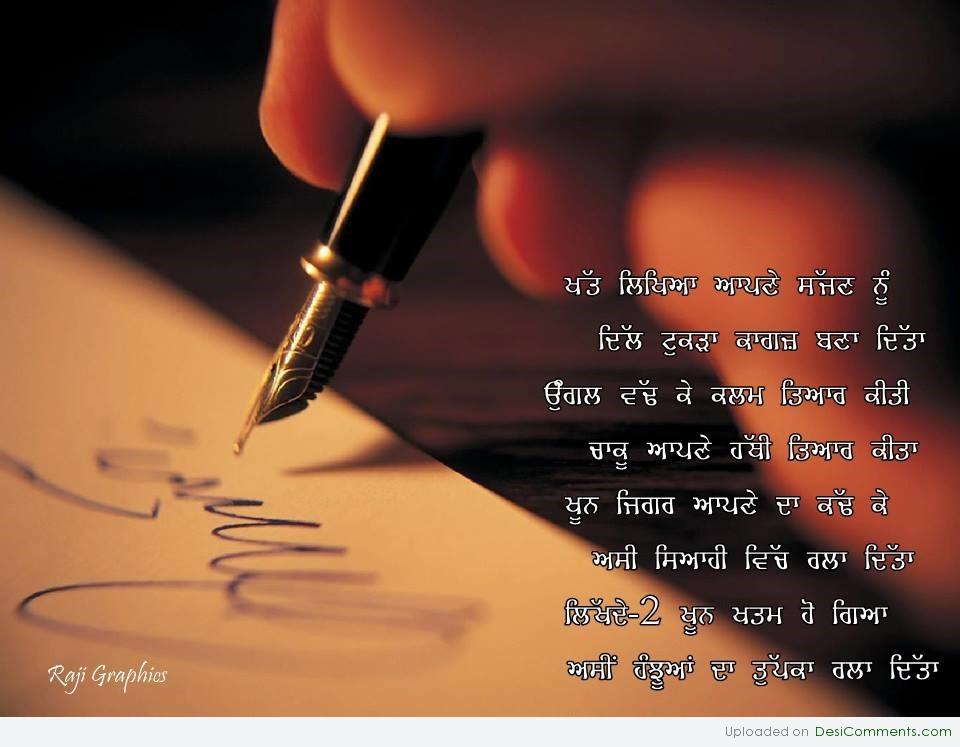 ਖੱਤ ਲਿਖਿਆ ਆਪਣੇ ਸੱਜਣ ਨੂੰ
ਦਿੱਲ ਟੁਕੜਾ ਕਾਗਜ਼ ਬਣਾ ਦਿੱਤਾ
ਉਂਗਲ ਵੱਢ ਕੇ ਕਲਮ ਤਿਆਰ ਕੀਤੀ
ਚਾਕੂ ਆਪਣੇ ਹੱਥੀ ਤਿਆਰ ਕੀਤਾ
ਖੂਨ ਜਿਗਰ ਆਪਣੇ ਦਾ ਕੱਢ ਕੇ
ਅਸੀ ਸਿਆਹੀ ਵਿਚੱ ਰਲਾ ਦਿੱਤਾ
ਲਿਖੱਦੇ-2 ਖੂਨ ਖਤਮ ਹੋ ਗਿਆ
ਅਸੀਂ ਹੰਝੂਆਂ ਦਾ ਤੁਪੱਕਾ ਰਲਾ ਦਿੱਤਾ
Raji Graphics
Uploaded on DesiComments.com